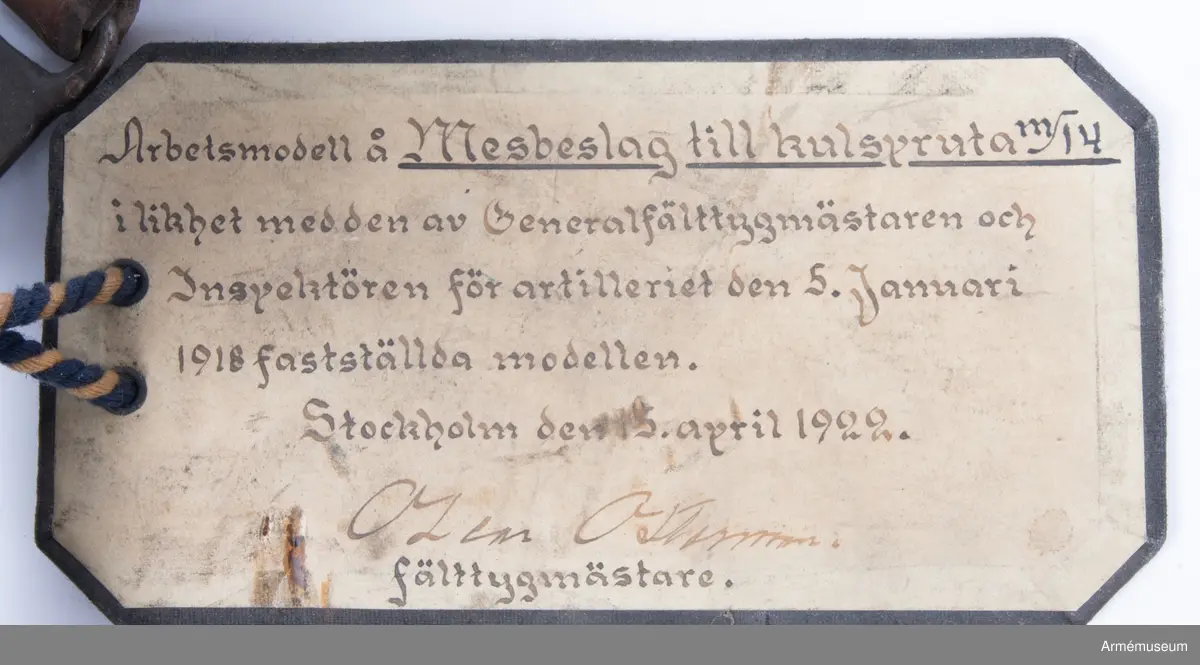 Arbetsmodell å Mesbeslag till kulspruta m/14
i likhet med den av Generalfälttygmästaren och
Inspektören för artilleriet den 5. Januari
1918 fastställda modellen.
Stockholm den 5. april 1922.
fälttygmästare.
Armémuseum